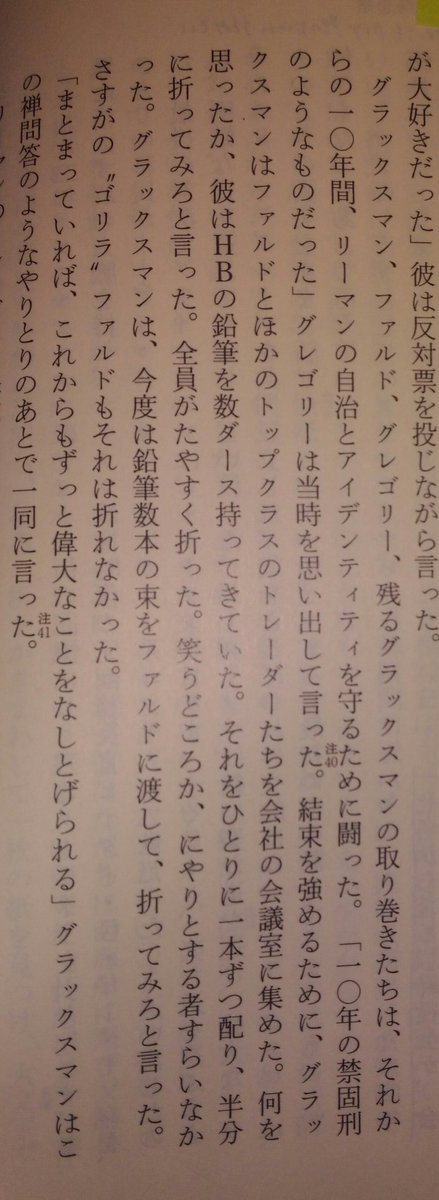 が大好きだった」彼は反対票を投じながら言った。
グラックスマン、ファルド、グレゴリー、残るグラックスマンの取り巻きたちは、それか
らの一〇年間、リーマンの自治とアイデンティティを守るために闘った。「一〇年の禁固刑
のようなものだった」グレゴリーは当時を思い出して言った。注40結束を強めるために、グラッ
クスマンはファルドとほかのトップクラスのトレーダーたちを会社の会議室に集めた。何を
思ったか、彼はHBの鉛筆を数ダース持ってきていた。それをひとりに一本ずつ配り、半分
に折ってみろと言った。全員がたやすく折った。笑うどころか、にやりとする者すらいなか
った。グラックスマンは、今度は鉛筆数本の束をファルドに渡して、折ってみろと言った。
さすがの〝ゴリラ〟ファルドもそれは折れなかった。
「まとまっていれば、これからもずっと偉大なことをなしとげられる」グラックスマンはこ
の禅問答のようなやりとりのあとで一同に言った。注41